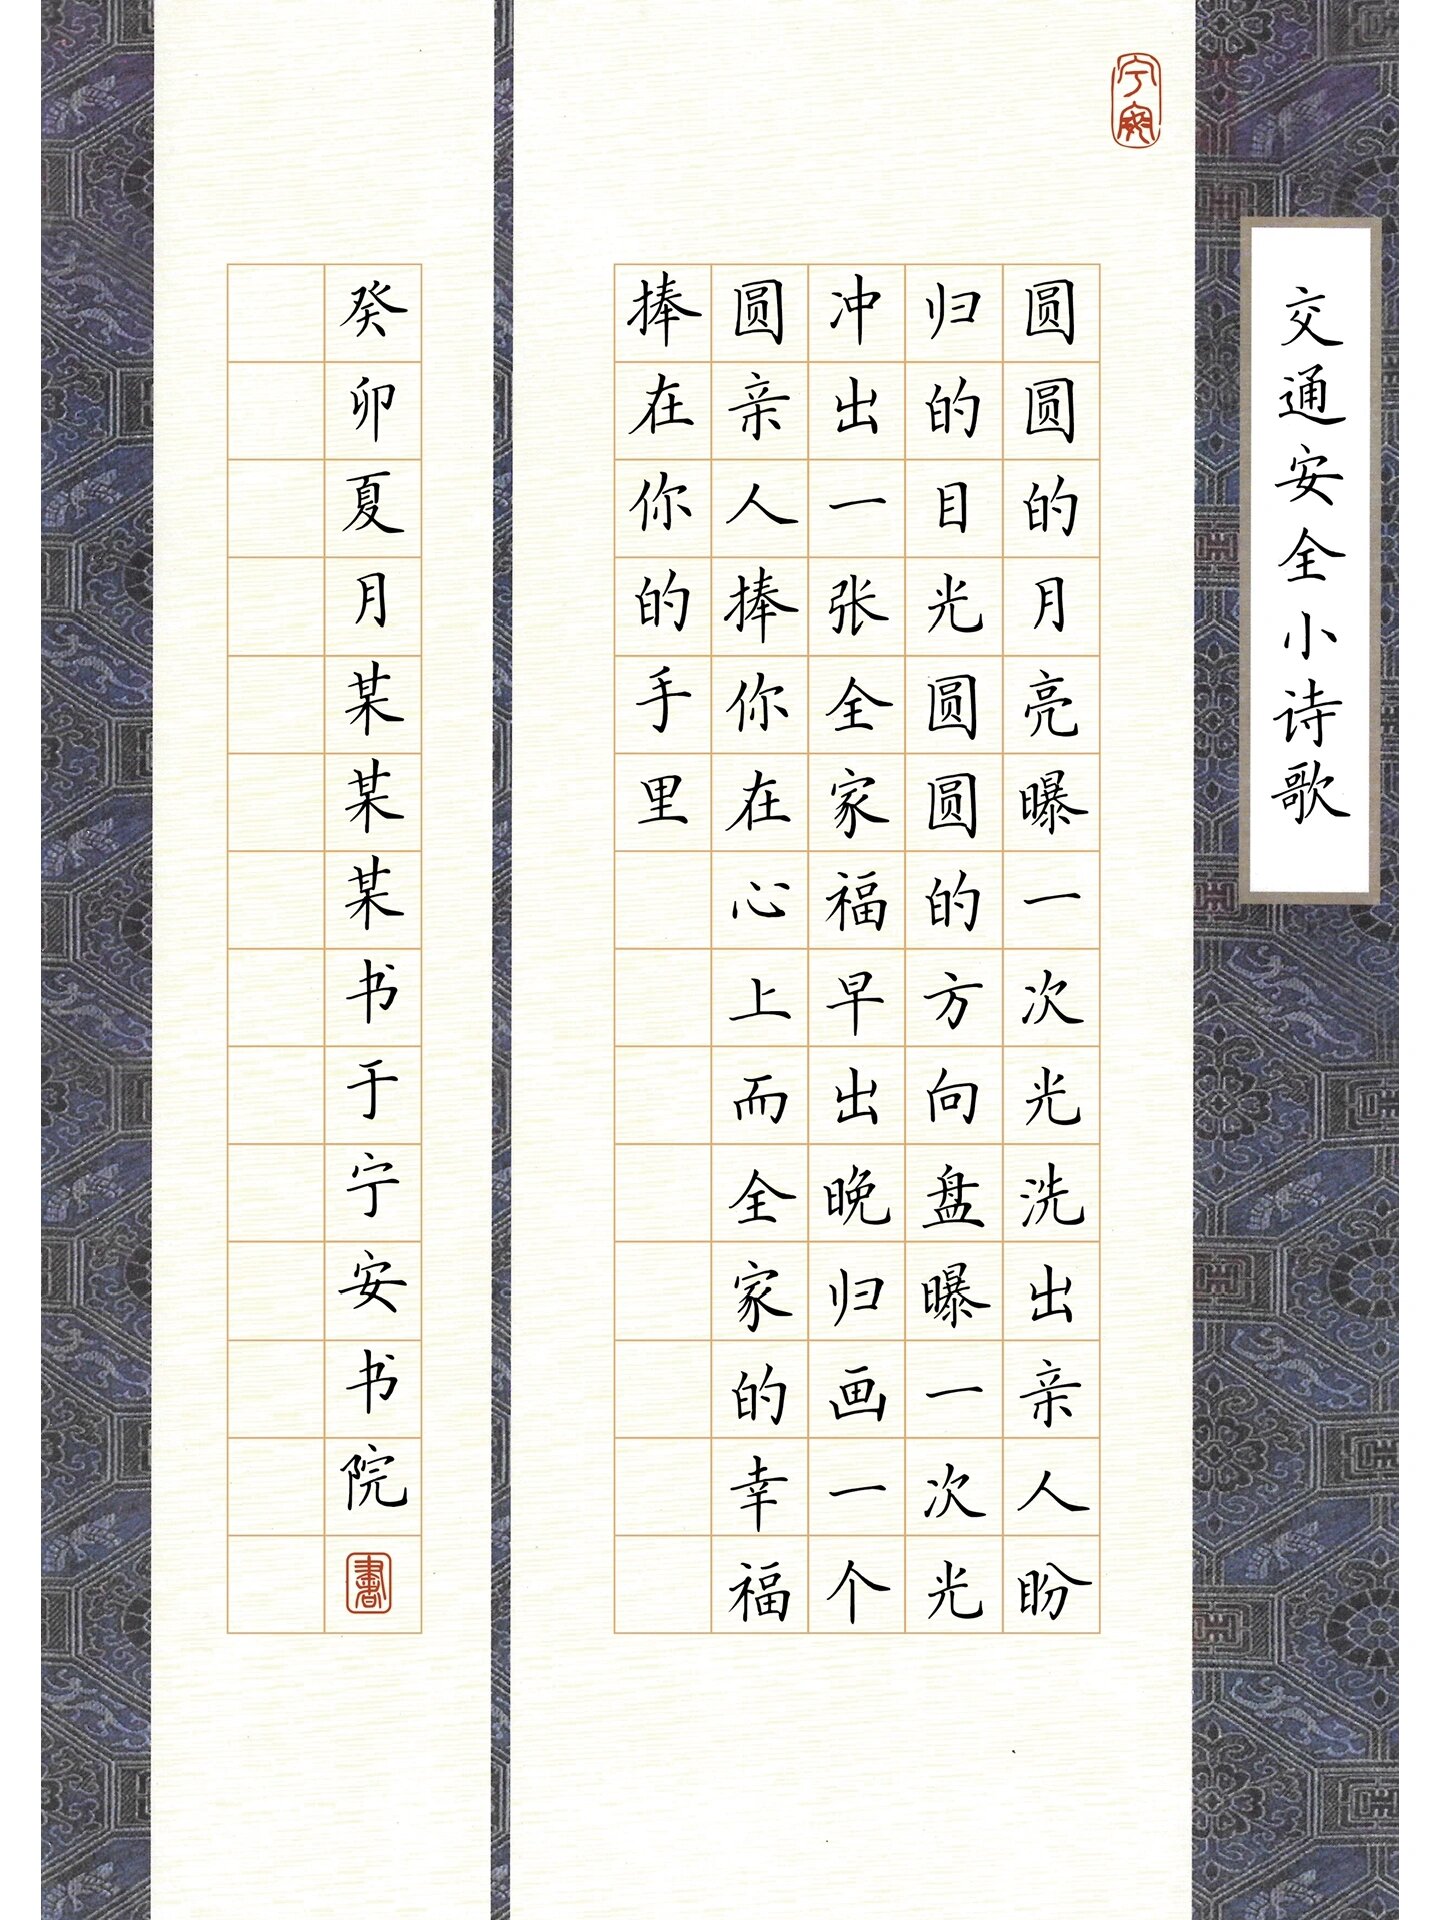 宁安
交通安全小诗歌
圆圆的月亮曝一次光洗出亲人盼
归的目光圆圆的方向盘曝一次光
冲出一张全家福早出晚归画一个
圆亲人捧你在心上而全家的幸福
捧在你的手里
癸卯夏月某某某书于宁安书院
書